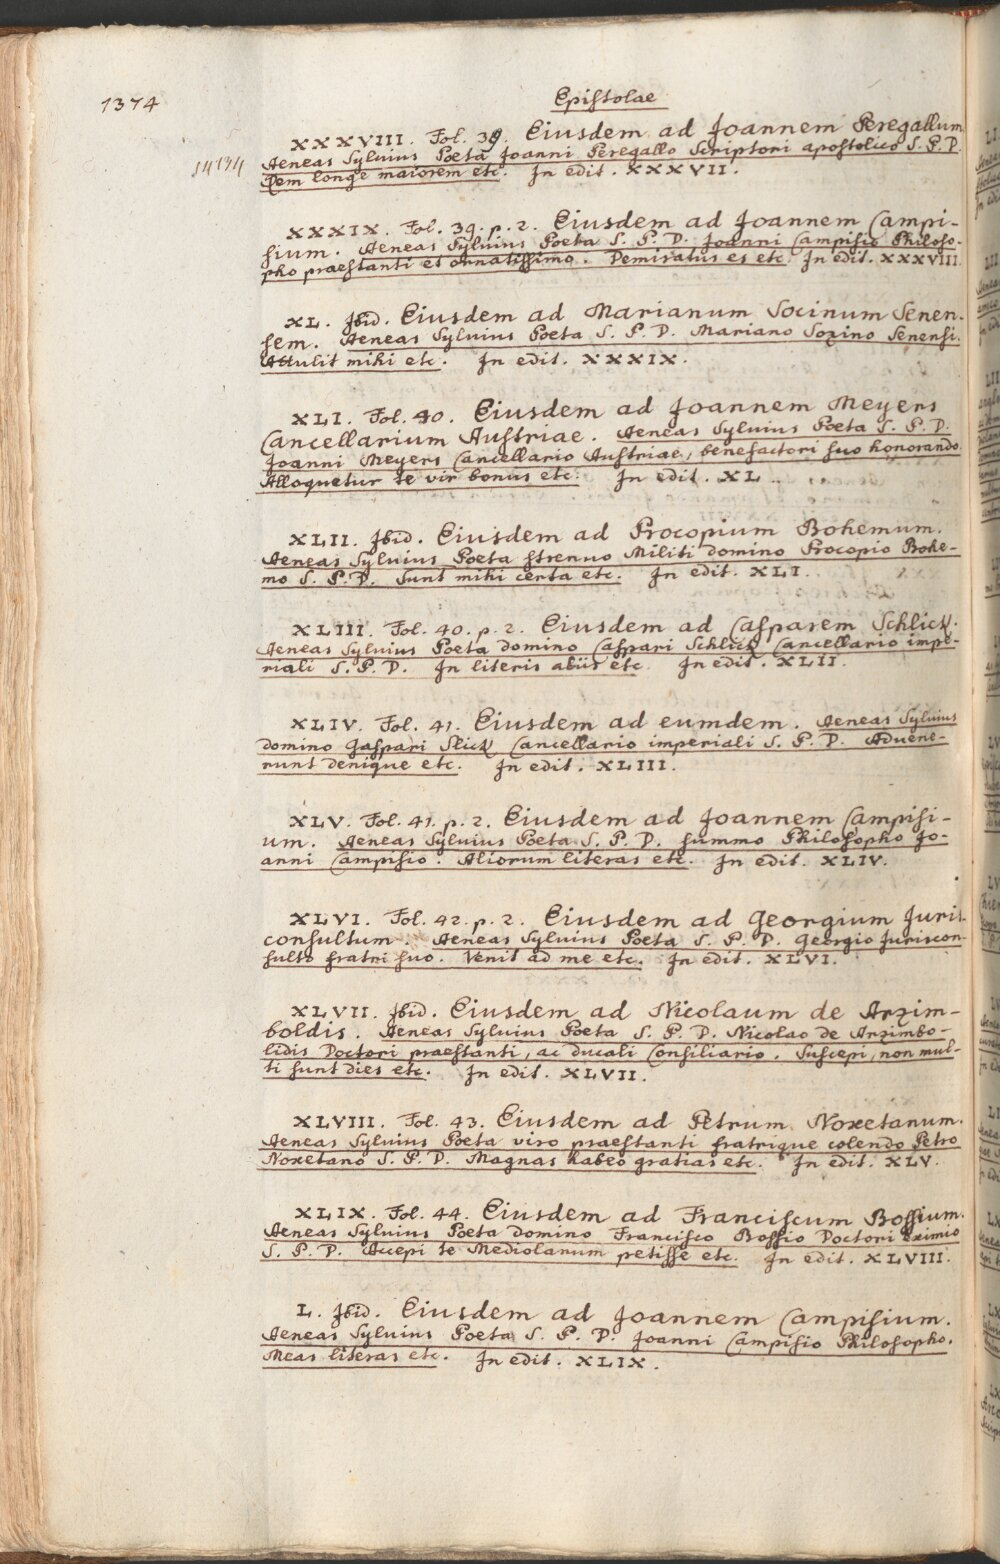 1374
Epistolae
XXXVIII. Fol. 39. Eiusdem ad Joannem Peregallum
Aeneas Sylvius Poeta Joanni Peregallo Scriptori apostolico S. P. D.
Rem longe maiorem etc. In edit. XXXVII.
XXXIX. Fol. 39. p. 2. Eiusdem ad Joannem Campi-
sium. Aeneas Sylvius Poeta S. P. D. Joanni Campisio Philoso-
pho praestanti et ornatissimo. Demiratus es etc. In edit. XXXVIII.
XL. Ibid. Eiusdem ad Marianum Socinum Senen-
sem. Aeneas Sylvius Poeta S. P. D. Mariano Sozino Senensi.
Attulit mihi etc. In edit. XXXIX.
XLI. Fol. 40. Eiusdem ad Joannem Meyers
Cancellarium Austriae. Aeneas Sylvius Poeta S. P. D.
Joanni Meyers Cancellario Austriae, benefactori suo honorando.
Alloquetur te vir bonus etc. In edit. XL.
XLII. Ibid. Eiusdem ad Procopium Bohemum.
Aeneas Sylvius Poeta strenuo Militi domino Procopio Bohe-
mo S. P. D. Sunt mihi certa etc. In edit. XLI.
XLIII. Fol. 40. p. 2. Eiusdem ad Casparem Schlick.
Aeneas Sylvius Poeta domino Caspari Schlick Cancellario impe-
riali S. P. D. In literis abiis etc. In edit. XLII.
XLIV. Fol. 41. Eiusdem ad eumdem. Aeneas Sylvius
domino Gaspari Slick Cancellario imperiali S. P. D. Advene-
runt denique etc. In edit. XLIII.
XLV. Fol. 41. p. 2. Eiusdem ad Joannem Campisi-
um. Aeneas Sylvius Poeta S. P. D. summo Philosopho Jo-
anni Campisio. Aliorum literas etc. In edit. XLIV.
XLVI. Fol. 42. p. 2. Eiusdem ad Georgium Juris-
consultum. Aeneas Sylvius Poeta S. P. D. Georgio Juriscon-
sulto fratri suo. Venit ad me etc. In edit. XLVI.
XLVII. Ibid. Eiusdem ad Nicolaum de Arzim-
boldis. Aeneas Sylvius Poeta S. P. D. Nicolao de Arzimbo-
lidis Doctori praestanti, ac ducali Consiliario. Suscepi, non mul-
ti sunt dies etc. In edit. XLVII.
XLVIII. Fol. 43. Eiusdem ad Petrum Noxetanum.
Aeneas Sylvius Poeta viro praestanti fratrique colendo Petro
Noxetano S. P. D. Magnas habeo gratias etc. In edit. XLV.
XLIX. Fol. 44. Eiusdem ad Franciscum Bossium.
Aeneas Sylvius Poeta domino Francisco Bossio Doctori eximio
S. P. D. Accepi te Mediolanum petisse etc. In edit. XLVIII.
L. Ibid. Eiusdem ad Joannem Campisium.
Aeneas Sylvius Poeta S. P. D. Joanni Campisio Philosopho.
Meas literas etc. In edit. XLIX.